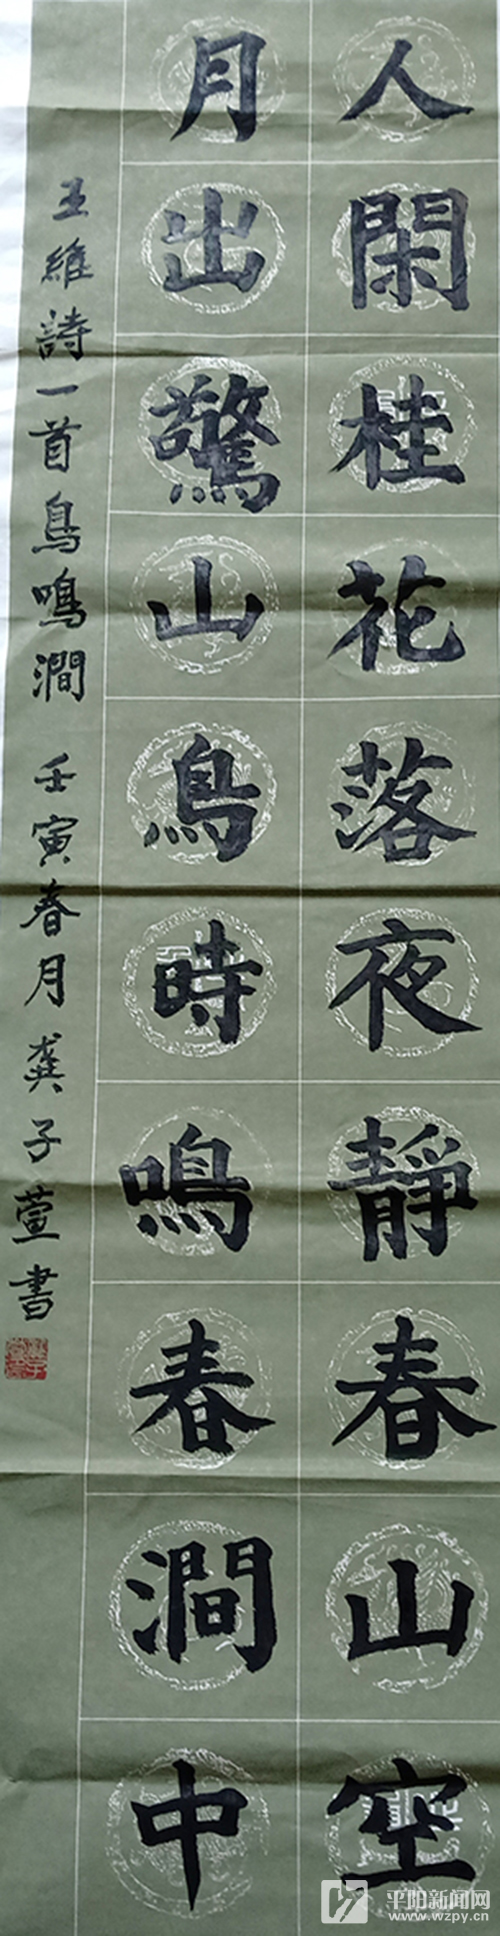 人閑桂花落夜靜春山空
月出驚山鳥時鳴春澗中
王維詩一首鳥鳴澗 壬寅春月龚子萱書
平阳新闻网
www.wzpy.cn